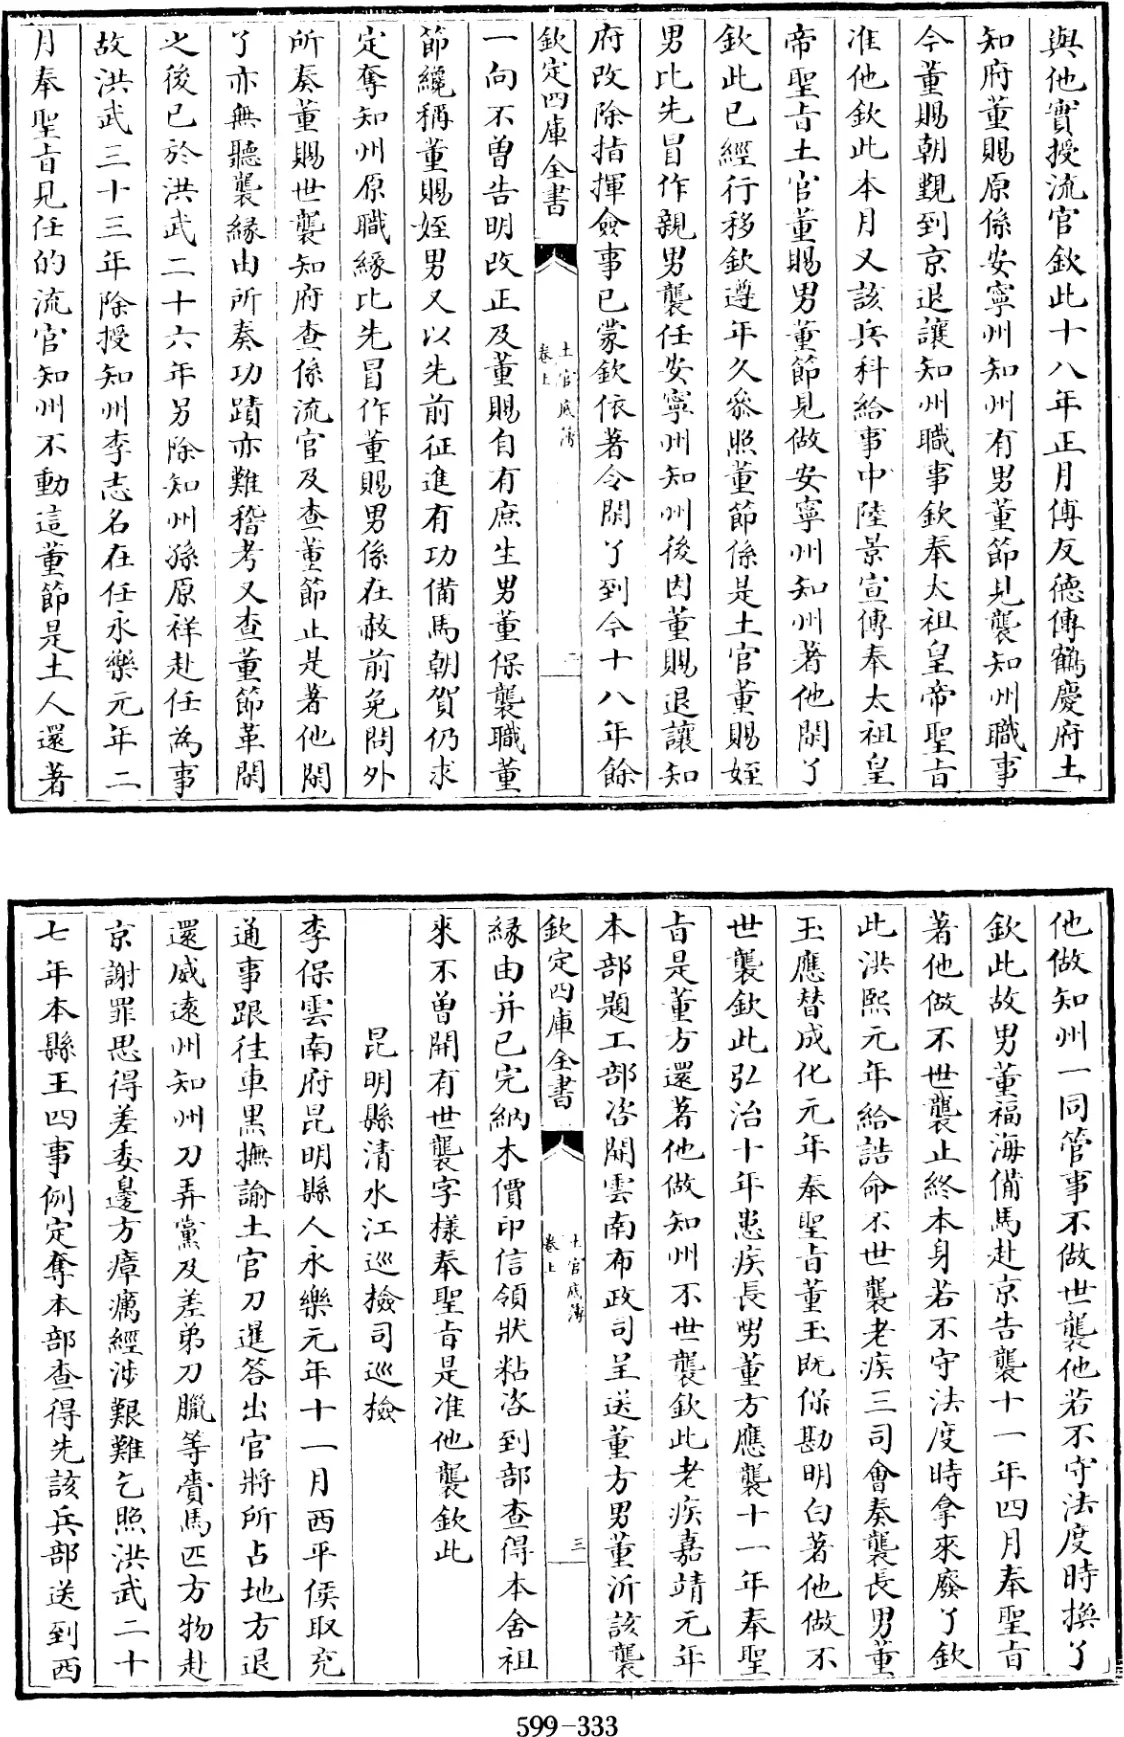 與他實授流官欽此十八年正月傅友德傳鶴慶府土
知府董賜原係安寧州知州有男董節見襲知州職事
今董賜朝覲到京退讓知州職事欽奉太祖皇帝聖旨
准他欽此本月又該兵科給事中陸景宣傳奉太祖皇
帝聖旨土官董賜男董節見做安寧州知州著他閑了
欽此已經行移欽遵年久叅照董節係是土官董賜姪
男比先冒作親男襲任安寧州知州後因董賜退讓知
府改除指揮僉事已蒙欽依著令閑了到今十八年餘
欽定四庫全書
土官底簿
卷上
二
一向不曽告明改正及董賜自有庶生男董保襲職董
節纔稱董賜姪男又以先前征進有功備馬朝賀仍求
定奪知州原職緣比先冒作董賜男係在赦前免問外
所奏董賜世襲知府查係流官及查董節止是著他閑
了亦無聽襲緣由所奏功蹟亦難稽考又查董節革閑
之後已於洪武二十六年另除知州孫原祥赴任為事
故洪武三十三年除授知州李志名在任永樂元年二
月奉聖旨見任的流官知州不動這董節是土人還著
他做知州一同管事不做世襲他若不守法度時換了
欽此故男董福海備馬赴京告襲十一年四月奉聖旨
著他做不世襲止終本身若不守法度時拿來廢了欽
此洪熙元年給誥命不世襲老疾三司會奏襲長男董
玉應替成化元年奉聖旨董玉既係勘明白著他做不
世襲欽此弘治十年患疾長男董方應襲十一年奉聖
旨是董方還著他做知州不世襲欽此老疾嘉靖元年
本部題工部咨開雲南布政司呈送董方男董沂該襲
欽定四庫全書
土官底簿
卷上
三
緣由并已完納木價印信領狀粘咨到部查得本舍祖
來不曽開有世襲字樣奉聖旨是准他襲欽此
昆明縣清水江巡檢司巡檢
李保雲南府昆明縣人永樂元年十一月西平侯取充
通事跟往車黑撫諭土官刀暹答出官將所占地方退
還威遠州知州刀弄黨及差弟刀臘等賫馬匹方物赴
京謝罪思得差委邊方瘴癘經涉艱難乞照洪武二十
七年本縣王四事例定奪本部查得先該兵部送到西
599-333